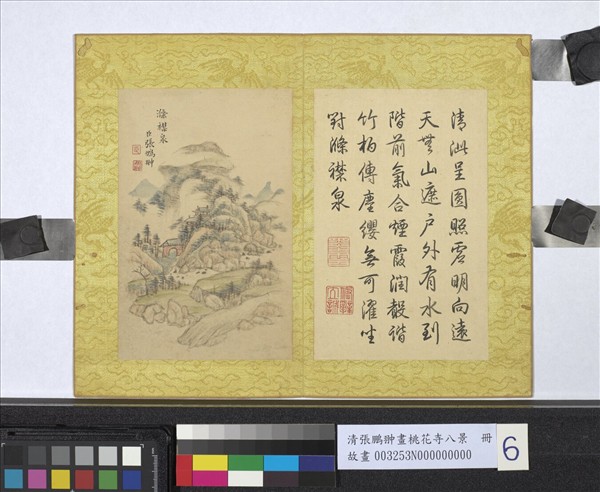 清泚呈圓照虛明向遠
天無山遮戶外有水到
階前氣合煙霞潤聲諧
竹柏傳塵纓無可濯坐
對滌襟泉
滌襟泉
臣張鵬翀
清張鵬翀畫桃花寺八景 冊
故畫 003253N000000000
6